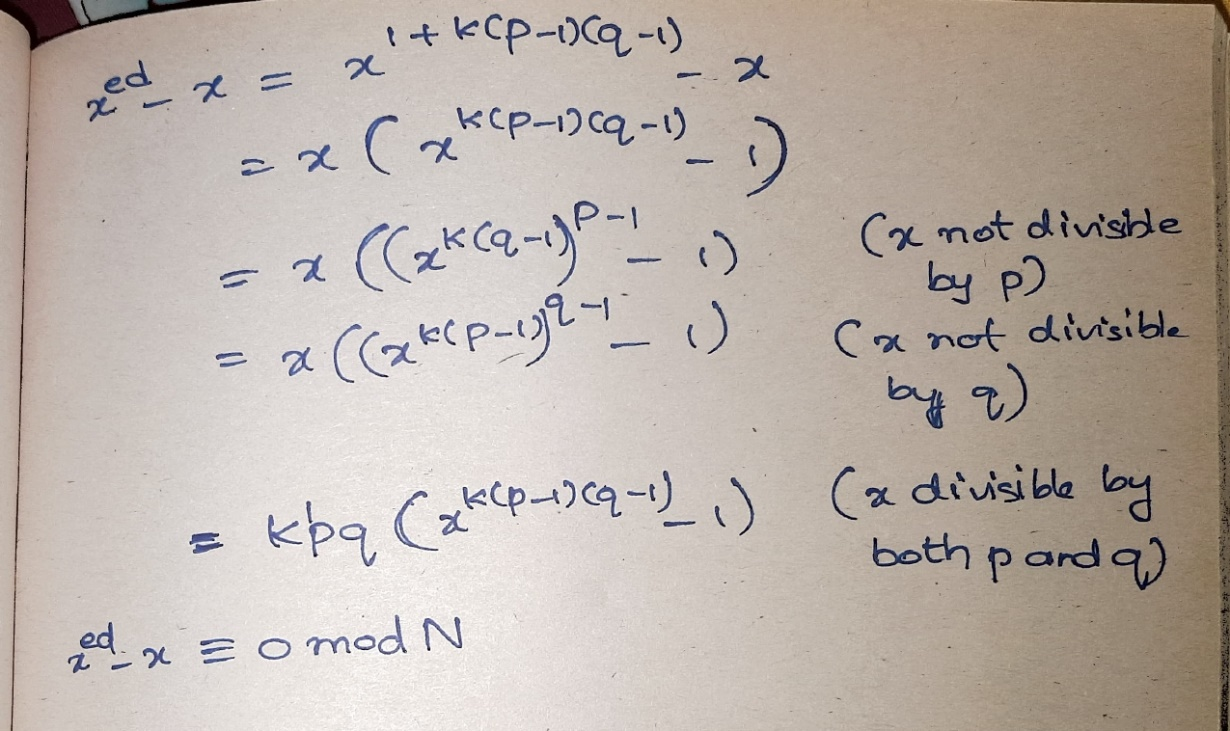 x^{ed} - x = x^{1+k(p-1)(q-1)} - x
= x(x^{k(p-1)(q-1)} - 1)
= x((x^{k(q-1)})^{p-1} - 1) (x not divisible
by p)
= x((x^{k(p-1)})^{q-1} - 1) (x not divisible
by q)
= kpq(x^{k(p-1)(q-1)} - 1) (x divisible by
both p and q)
x^{ed} - x ≡ 0 mod N